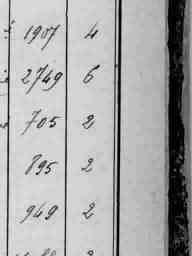 1907 4
2749 6
705 2
895 2
949 2